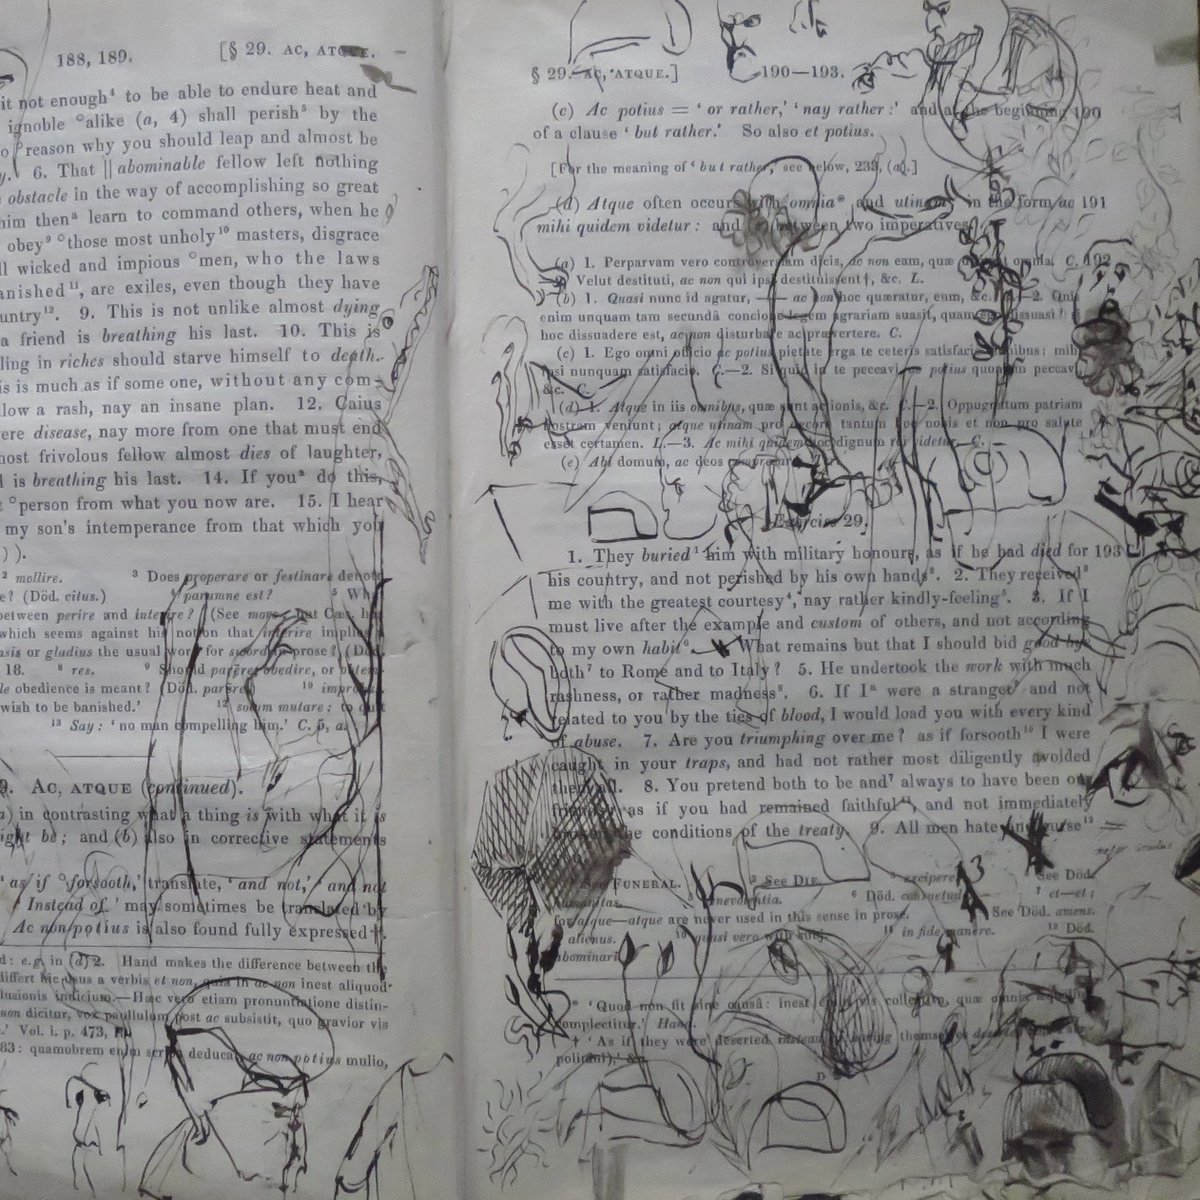 188, 189.
[§ 29. AC, ATQUE.
it not enough⁴ to be able to endure heat and
ignoble °alike (a, 4) shall perish⁵ by the
reason why you should leap and almost be
6. That || abominable fellow left nothing
obstacle in the way of accomplishing so great
him thenᵃ learn to command others, when he
obey⁹ °those most unholy¹⁰ masters, disgrace
ll wicked and impious °men, who the laws
anished¹¹, are exiles, even though they have
untry¹². 9. This is not unlike almost dying
a friend is breathing his last. 10. This is
ling in riches should starve himself to death.
is is much as if some one, without any com-
low a rash, nay an insane plan. 12. Caius
ere disease, nay more from one that must end
most frivolous fellow almost dies of laughter,
is breathing his last. 14. If youᵃ do this,
°person from what you now are. 15. I hear
my son's intemperance from that which you
) ).
² mollire. ³ Does properare or festinare denote
e? (Död. citus.) ⁴ parumne est?
between perire and interire? (See
which seems against his notion that interire implies
asis or gladius the usual word for prose?
18. ⁸ res. ⁹ Should parere, obedire, or
le obedience is meant? (Död. parere)
wish to be banished.' ¹² solum mutare: to
¹³ Say: 'no man compelling him.' C. 5, a.
9. AC, ATQUE (continued).
a) in contrasting what a thing is with what it is
ight be; and (b) also in corrective statements
'as if °forsooth,' translate, 'and not,' 'and not
Instead of ' may sometimes be translated by
Ac non potius is also found fully expressed†.
d: e.g. in (d) 2. Hand makes the difference between the
differt hic usus a verbis et non, quia in ac non inest aliquod
lusionis indicium.—Hæc vero etiam pronuntiatione distin-
non dicitur, vox paullulum post ac subsistit, quo gravior vis
Vol. i. p. 473,
83: quamobrem enim deducas ac non potius mulio,
§ 29. AC, ATQUE.]
190—193.
(c) Ac potius = 'or rather,' 'nay rather:' and at the beginning 190
of a clause 'but rather.' So also et potius.
[For the meaning of 'but rather,' see below, 233, (a).]
(d) Atque often occurs with omnia* and utinam, in the form ac 191
mihi quidem videtur: and between two imperatives.
(a) 1. Perparvam vero controversiam dicis, ac non eam, quæ omnia. C. 192
Velut destituti, ac non qui ipsi destituissent†, &c. L.
(b) 1. Quasi nunc id agatur, — ac hoc quæratur, eum, &c. —2. Quis
enim unquam tam secundâ concione legem agrariam suasit, quam ego dissuasi?
hoc dissuadere est, ac non disturbare ac pervertere. C.
(c) 1. Ego omni officio ac potius pietate erga te ceteris satisfacio omnibus: mihi
ipsi nunquam satisfacio. C.—2. Si quid in te peccavi ac potius quoniam peccavi
&c. C.
(d) 1. Atque in iis omnibus, quæ sunt actionis, &c. C.—2. Oppugnatum patriam
nostram veniunt; atque utinam pro decore tantum hoc vobis et non pro salute
esset certamen. L.—3. Ac mihi quidem hoc dignum rei videtur. C.
(e) Abi domum, ac deos
Exercise 29.
1. They buried¹ him with military honours, as if he had died for 193
his country, and not perished by his own hands². 2. They received³
me with the greatest courtesy⁴, nay rather kindly-feeling⁵. 3. If I
must live after the example and custom of others, and not according
to my own habit⁶. What remains but that I should bid good bye
both⁷ to Rome and to Italy? 5. He undertook the work with much
rashness, or rather madness⁸. 6. If Iᵃ were a stranger⁹ and not
related to you by the ties of blood, I would load you with every kind
of abuse. 7. Are you triumphing over me? as if forsooth¹⁰ I were
caught in your traps, and had not rather most diligently avoided
them all. 8. You pretend both to be and⁷ always to have been our
friends, as if you had remained faithful¹¹, and not immediately
broken the conditions of the treaty. 9. All men hate and curse¹²
See FUNERAL. ² See DIE. ³ excipere. See Död.
humanitas. ⁵ benevolentia. ⁶ Död. consuetudo. ⁷ et—et;
for atque—atque are never used in this sense in prose. See Död. amens.
alienus. ¹⁰ quasi vero with subj. ¹¹ in fide manere. ¹² Död.
abominari.
* 'Quod non fit sine causâ: inest enim vis collegit, quæ omnia
complectitur.' Hand.
† 'As if they were deserted instead of having themselves
&c.